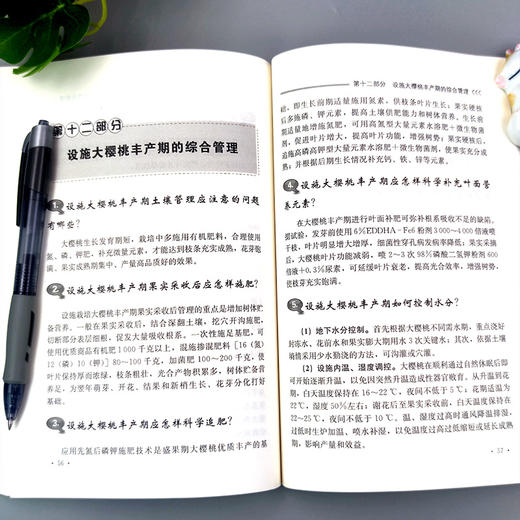 第十二部分
设施大樱桃丰产期的综合管理
1. 设施大樱桃丰产期土壤管理应注意的问题
有哪些?
大樱桃生长发育期短,栽培中多施用有机肥料,合理使用
氮、磷、钾肥,补充微量元素,才能达到枝条充实成熟,花芽饱
满、果实成熟期集中、产量高品质好的效果。
2. 设施大樱桃丰产期果实采收后应怎样施肥?
设施栽培大樱桃丰产期果实采收后管理的重点是增加树体贮
备营养。一般在果实采收后,结合深翻土壤,挖穴开沟施肥,
切断部分表层细根,促发大量吸收根系。一次性施足基肥,可
使用优质商品有机肥1000千克以上,混施掺混肥料[16(氮)
12(磷)10(钾)]80~100千克,加菌肥100~200千克,使
叶片保持浑而浓绿,枝条粗壮,光合产物积累多,树体贮备营养
丰富,为翌年萌芽、开花、结果和新梢生长、花芽分化打好
基础。
3. 设施大樱桃丰产期应怎样科学追肥?
应用先氮后磷钾施肥技术是盛果期大樱桃优质丰产的基
· 56 ·
第十二部分 设施大樱桃丰产期的综合管理 <<<
础,即生长前期适量施用氮素,供枝条叶片生长;果实硬核
后多施磷、钾元素,提高土壤供肥能力和树体营养。生长前
期适量地增施氮肥,可用高氮型大量元素水溶肥+微生物菌
剂,促进叶片增大,提高叶片功能,增强树势。果实硬核后,
追施高磷高钾型大量元素水溶肥+微生物菌剂,使果实充分成
熟;并根据后期生长情况补充钙、铁、锌等元素。
4. 设施大樱桃丰产期应怎样科学补充叶面营
养元素?
在大樱桃丰产期进行叶面补肥可弥补根系吸收不足的缺陷。
据试验,发芽前使用6%EDDHA-Fe6粉剂3000~4000倍液喷
干枝,叶片明显增大增厚,细菌性穿孔病发病率降低;果实采摘
后,大樱桃叶片功能减弱,喷2~3次98%磷酸二氢钾粉剂600
倍液+0.3%尿素,可延缓叶片衰老,提高光合效率,增强树势,
使枝芽充实饱满。
5. 设施大樱桃丰产期如何控制水分?
(1)地下水分控制。首先根据大樱桃不同需水期,重点浇好
封冻水、花前水和果实膨大期用水3次关键水;其次,依据土壤
墒情采用少水勤浇的方法,可沟灌或穴灌。
(2)设施内温、湿度调控。大樱桃在顺利通过自然休眠后即
可开始逐渐升温,以免因突然升温造成性器官败育。从升温到花
前,白天温度保持在16~22℃,夜间不低于5℃;花期适温为
22℃,湿度50%左右;谢花后至果实采收前,白天温度保持在
22~25℃,夜间不低于10℃。温、湿度过高时通风降温排湿,
过低时生炉加温、喷水补湿,以免温度过高过低缩短或延长成熟
期,影响产量和效益。
· 57 ·